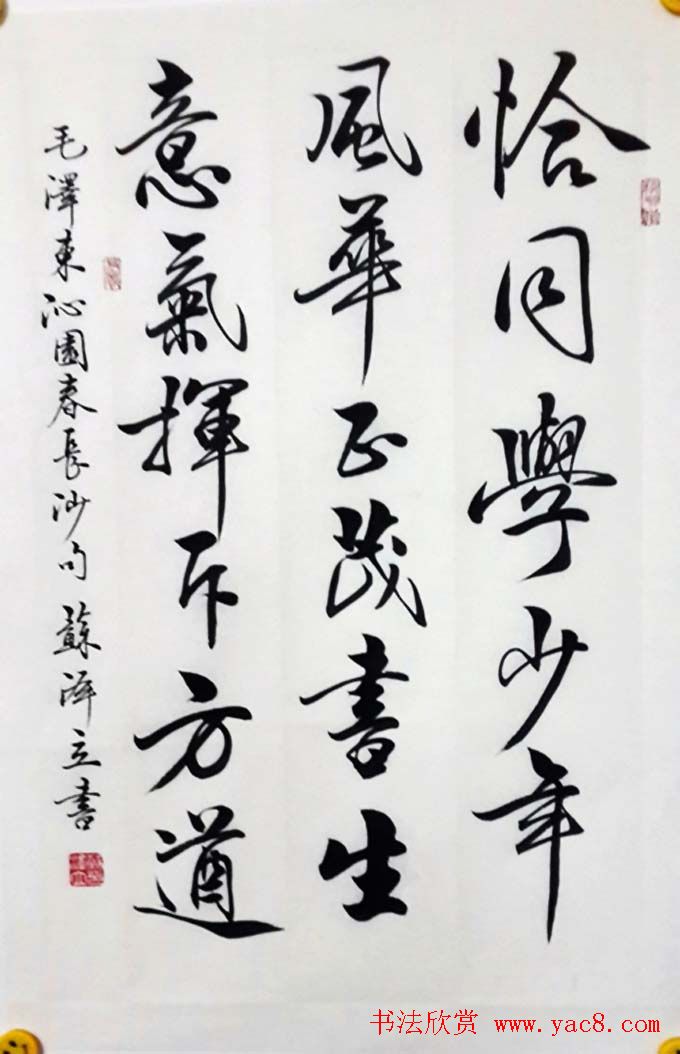 恰同學少年
風華正茂書生
意氣揮斥方遒
毛澤東沁園春長沙句 蘇澤立書
书法欣赏 www.yac8.com